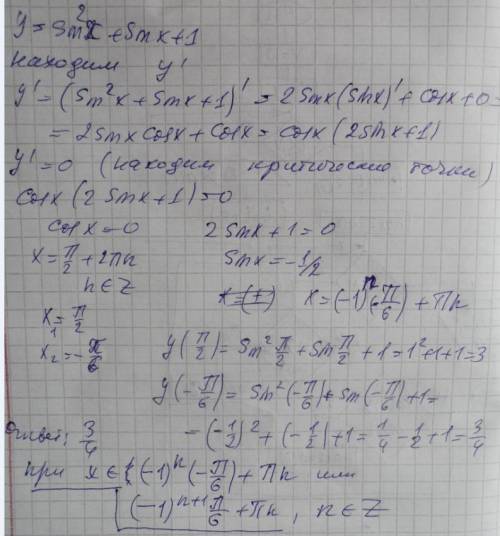 y = sin²x + sin x + 1
находим y'
y' = (sin²x + sin x + 1)' = 2 sin x (sin x)' + cos x + 0 =
= 2 sin x cos x + cos x = cos x (2 sin x + 1)
y' = 0 (находим критические точки)
cos x (2 sin x + 1) = 0
cos x = 0 2 sin x + 1 = 0
x = π/2 + 2πn sin x = -1/2
n ∈ Z x = (-1)ⁿ(-π/6) + πn
x₁ = π/2 y(π/2) = sin² π/2 + sin π/2 + 1 = 1² + 1 + 1 = 3
x₂ = -π/6 y(-π/6) = sin²(-π/6) + sin(-π/6) + 1 =
Ответ: 3/4 = (-1/2)² + (-1/2) + 1 = 1/4 - 1/2 + 1 = 3/4
при x ∈ (-1)ⁿ(-π/6) + πn или
(-1)ⁿ⁺¹ π/6 + πn, n ∈ Z